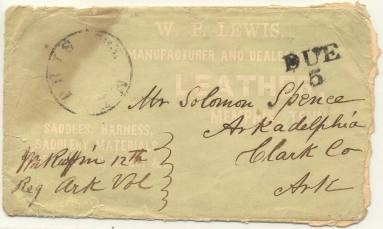 W. P. LEWIS.
MANUFACTURER AND DEALER
LEATHER
SADDLES, HARNESS,
SADDLERY MATERIALS
DUE
5
Mr Solomon Spence
Arkadelphia
Clark Co
Ark
12th
Reg Ark Vol